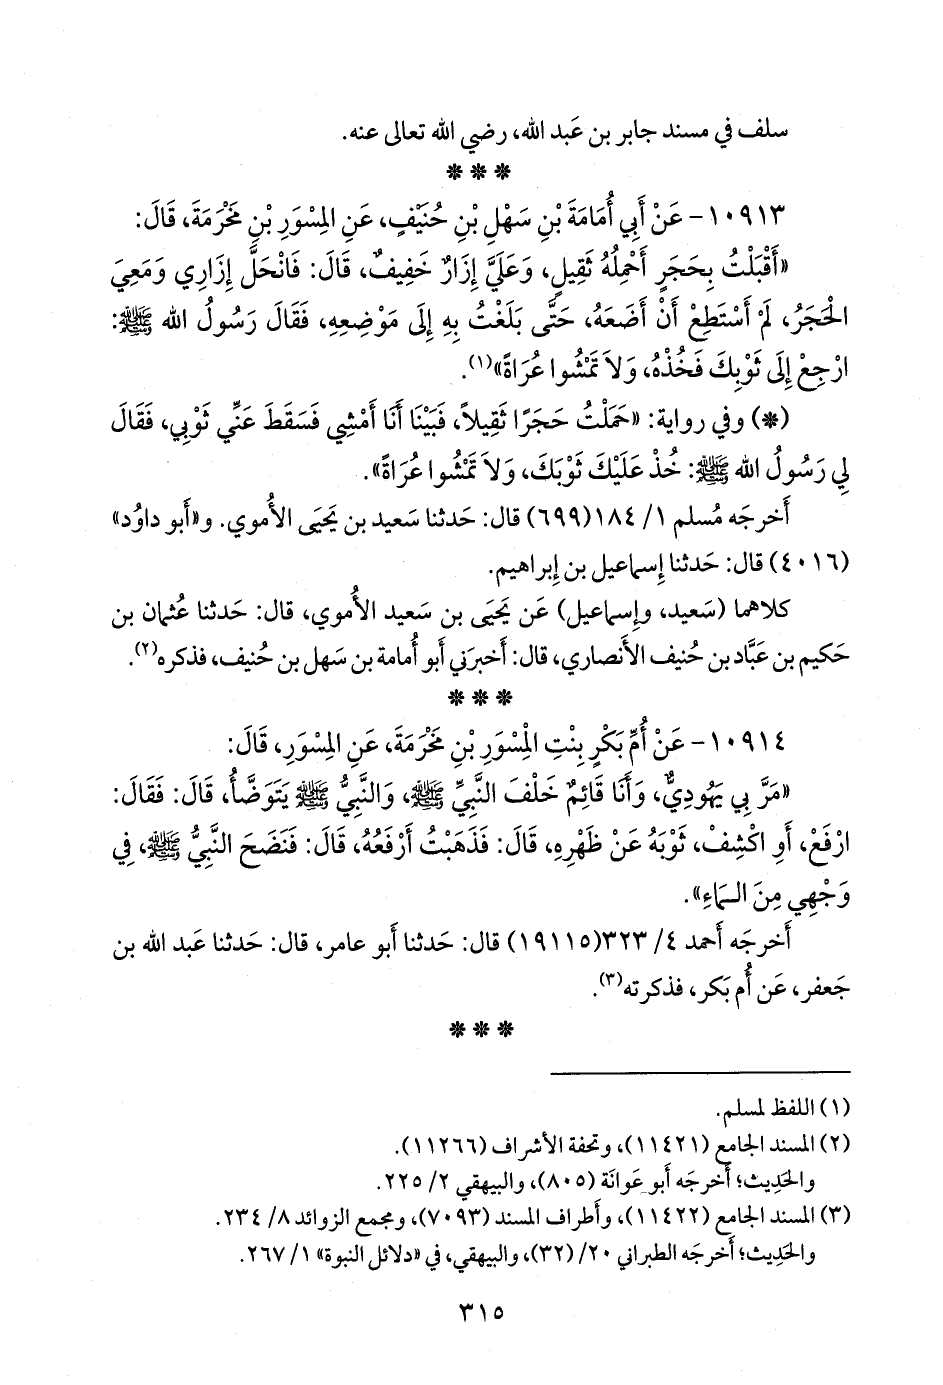 سلف في مسند جابر بن عَبد الله، رضي الله تعالى عنه.
***
١٠٩١٣- عَنْ أَبِي أُمَامَةَ بْنِ سَهْلِ بْنِ حُنَيْفٍ، عَنِ الْمِسْوَرِ بْنِ مَخْرَمَةَ، قَالَ:
«أَقْبَلْتُ بِحَجَرٍ أَحْمِلُهُ ثَقِيلٍ، وَعَلَيَّ إِزَارٌ خَفِيفٌ، قَالَ: فَانْحَلَّ إِزَارِي وَمَعِيَ
الْحَجَرُ، لَمْ أَسْتَطِعْ أَنْ أَضَعَهُ، حَتَّى بَلَغْتُ بِهِ إِلَى مَوْضِعِهِ، فَقَالَ رَسُولُ الله ﷺ:
ارْجِعْ إِلَى ثَوْبِكَ فَخُذْهُ، وَلاَ تَمْشُوا عُرَاةً»(١).
(*) وفي رواية: «حَمَلْتُ حَجَرًا ثَقِيلاً، فَبَيْنَا أَنَا أَمْشِي فَسَقَطَ عَنِّي ثَوْبِي، فَقَالَ
لِي رَسُولُ الله ﷺ: خُذْ عَلَيْكَ ثَوْبَكَ، وَلاَ تَمْشُوا عُرَاةً».
أَخرجَه مُسلم ١/ ١٨٤(٦٩٩) قال: حَدثنا سَعيد بن يَحيَى الأُموي. و«أَبو داوُد»
(٤٠١٦) قال: حَدثنا إِسماعيل بن إِبراهيم.
كلاهما (سَعيد، وإِسماعيل) عَن يَحيَى بن سَعيد الأُموي، قال: حَدثنا عُثمان بن
حَكيم بن عَبَّاد بن حُنيف الأَنصاري، قال: أَخبرَني أَبو أُمامة بن سَهل بن حُنيف، فذكره(٢).
***
١٠٩١٤- عَنْ أُمِّ بَكْرٍ بِنْتِ الْمِسْوَرِ بْنِ مَخْرَمَةَ، عَنِ الْمِسْوَرِ، قَالَ:
«مَرَّ بِي يَهُودِيٌّ، وَأَنَا قَائِمٌ خَلْفَ النَّبِيِّ ﷺ، وَالنَّبِيُّ ﷺ يَتَوَضَّأُ، قَالَ: فَقَالَ:
ارْفَعْ، أَوِ اكْشِفْ، ثَوْبَهُ عَنْ ظَهْرِهِ، قَالَ: فَذَهَبْتُ أَرْفَعُهُ، قَالَ: فَنَضَحَ النَّبِيُّ ﷺ، فِي
وَجْهِي مِنَ الْمَاءِ».
أَخرجَه أَحمد ٤/ ٣٢٣(١٩١١٥) قال: حَدثنا أَبو عامر، قال: حَدثنا عَبد الله بن
جَعفر، عَن أُم بَكر، فذكرته(٣).
***
(١) اللفظ لمسلم.
(٢) المسند الجامع (١١٤٢١)، وتحفة الأشراف (١١٢٦٦).
والحَدِيث؛ أَخرجَه أَبو عَوانَة (٨٠٥)، والبيهقي ٢/ ٢٢٥.
(٣) المسند الجامع (١١٤٢٢)، وأطراف المسند (٧٠٩٣)، ومجمع الزوائد ٨/ ٢٣٤.
والحَدِيث؛ أَخرجَه الطبراني ٢٠/ (٣٢)، والبيهقي، في «دلائل النبوة» ١/ ٢٦٧.
٣١٥